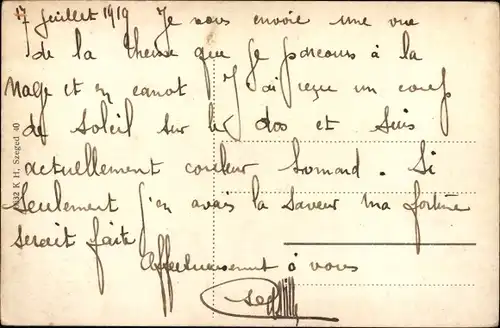 17 juillet 1919 Je vous envoie une vue
de la theiss que je parcours à la
nage et en canot J'ai reçu un coup
de soleil sur le dos et suis
actuellement couleur homard. Si
seulement j'en avais la saveur ma fortune
serait faite
Affectueusement à vous
K. H. Szeged 40